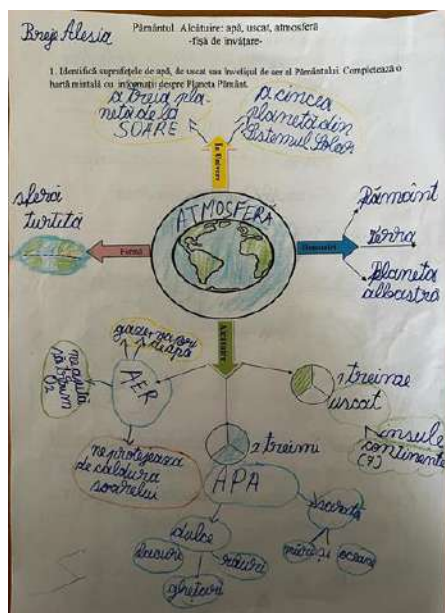 Breje Alesia
Pământul. Alcătuire: apă, uscat, atmosferă
-fișă de învățare-
1. Identifică suprafețele de apă, de uscat sau învelișul de aer al Pământului. Completează o
hartă mintală cu informații despre Planeta Pământ.
a treia pla-
netă de la
SOARE
a cincea
planetă din
Sistemul Solar
În Univers
sferă
turtită
Formă
ATMOSFERA
Denumiri
Pământ
Terra
Planeta
albastră
Alcătuire
gaze
vapori
de apă
AER
ne ajută
să
O2
ne protejează
de căldura
soarelui
1 treime
uscat
insule
continente
(7)
2 treimi
APA
dulce
lacuri
râuri
ghețuri
sărată
mări și oceane